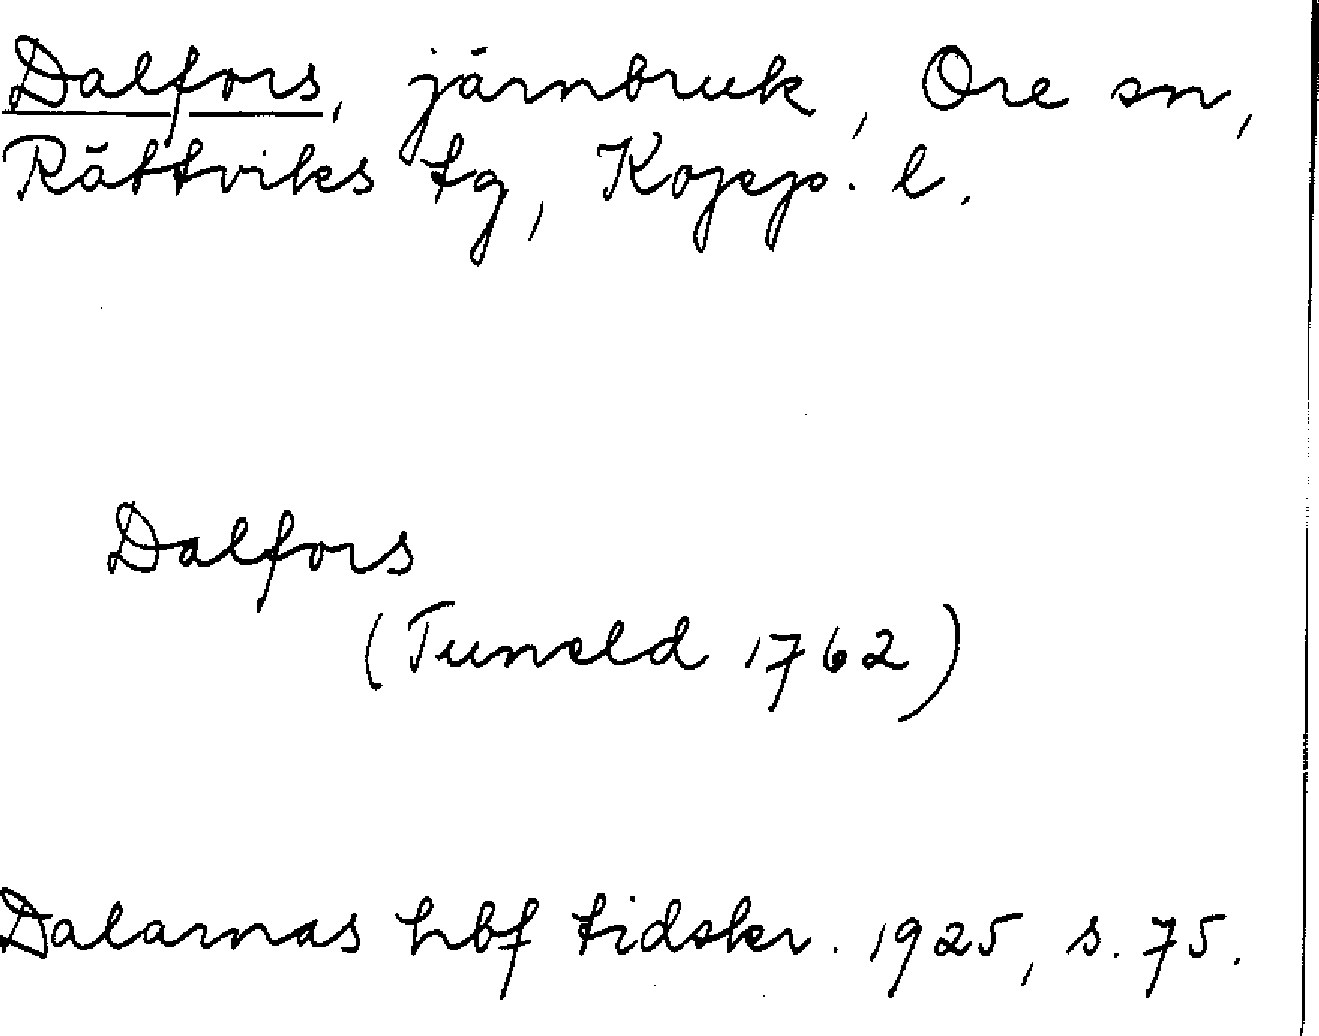 Dalfors, järnbruk, Ore sn,
Rättviks tg, Kopp. l.
Dalfors
(Tuneld 1762)
Dalarnas hbf tidskr. 1925, s. 75.